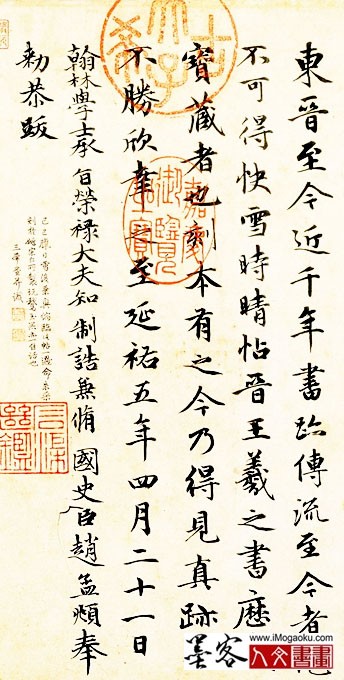 東晉至今近千年書跡傳流至今者絕
不可得快雪時晴帖晉王羲之書歷
寶藏者也刻本有之今乃得見真跡
不勝欣幸之至延祐五年四月二十一日
翰林學士承旨榮祿大夫知制誥兼脩國史臣趙孟頫奉
勅恭跋
古希天子
嘉慶御覽之寶
墨客
www.iMogaoku.com
人文書畫